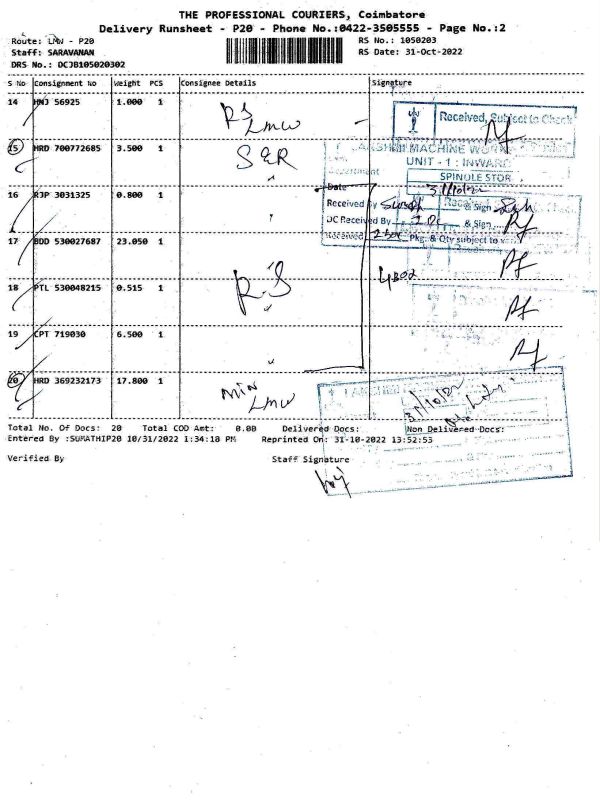 THE PROFESSIONAL COURIERS, Coimbatore
Delivery Runsheet - P20 - Phone No.:0422-3505555 - Page No.:2
Route: LMW - P20 RS No.: 1050203
Staff: SARAVANAN RS Date: 31-Oct-2022
DRS No.: DCJB105020302
S No Consignment No Weight PCS Consignee Details Signature
14 HNJ 56925 1.000 1 RS LMW
Received, Subject to Check
15 HRD 700772685 3.500 1 S&R
LAKSHMI MACHINE WORKS
UNIT - 1 : INWARD
SPINDLE STOR
16 RJP 3031325 0.800 1 "
Date 31/10/22
Received by & Sign
DC Received By & Sign
17 BDD 530027687 23.050 1
Received 2 box Pkg. & Qty subject to
18 PTL 530048215 0.515 1 R.S
19 CPT 719030 6.500 1 "
20 HRD 369232173 17.800 1 LMW
31/10/22
Total No. Of Docs: 20 Total COD Amt: 0.00 Delivered Docs: Non Delivered Docs:
Entered By :SUMATHIP20 10/31/2022 1:34:18 PM Reprinted On: 31-10-2022 13:52:53
Verified By Staff Signature